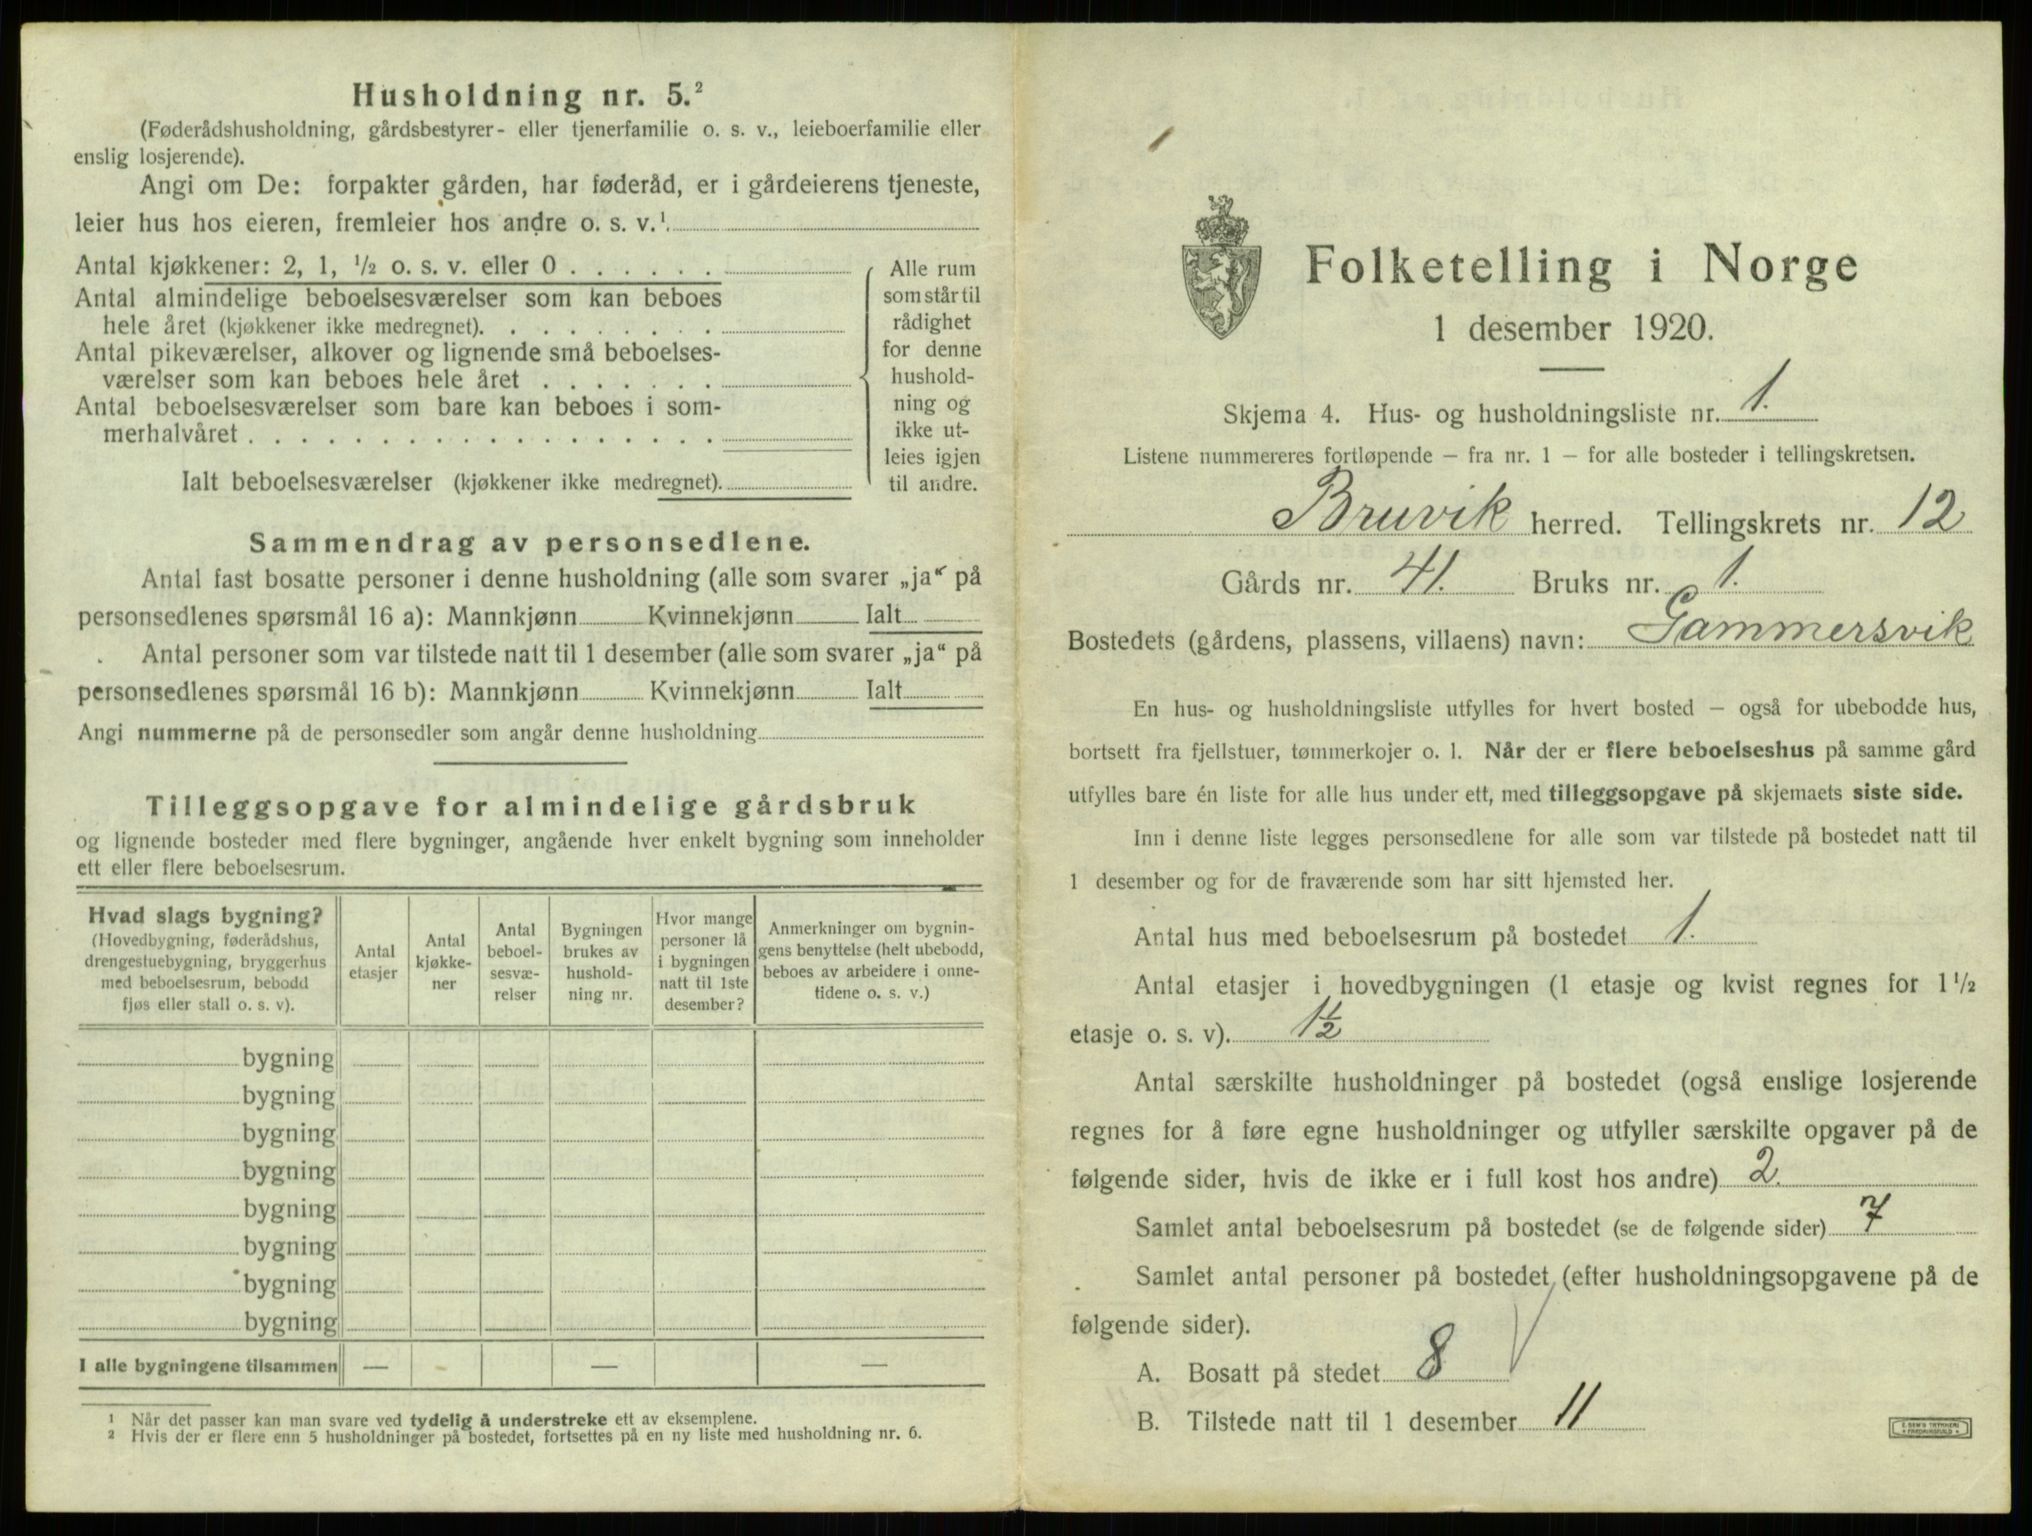 Husholdning nr. 5.²
(Føderådshusholdning, gårdsbestyrer- eller tjenerfamilie o. s. v., leieboerfamilie eller
enslig losjerende).
Angi om De: forpakter gården, har føderåd, er i gårdeierens tjeneste,
leier hus hos eieren, fremleier hos andre o. s. v.¹
Antal kjøkkener: 2, 1, ½ o. s. v. eller 0 . . . . . .
Antal almindelige beboelsesværelser som kan beboes
hele året (kjøkkener ikke medregnet). . . . . . . . .
Antal pikeværelser, alkover og lignende små beboelses-
værelser som kan beboes hele året . . . . . . .
Antal beboelsesværelser som bare kan beboes i som-
merhalvåret . . . . . . . . . . . . . . . . . .
Ialt beboelsesværelser (kjøkkener ikke medregnet).
Alle rum
som står til
rådighet
for denne
hushold-
ning og
ikke ut-
leies igjen
til andre.
Sammendrag av personsedlene.
Antal fast bosatte personer i denne husholdning (alle som svarer „ja“ på
personsedlenes spørsmål 16 a): Mannkjønn Kvinnekjønn Ialt
Antal personer som var tilstede natt til 1 desember (alle som svarer „ja“ på
personsedlenes spørsmål 16 b): Mannkjønn Kvinnekjønn Ialt
Angi nummerne på de personsedler som angår denne husholdning
Tilleggsopgave for almindelige gårdsbruk
og lignende bosteder med flere bygninger, angående hver enkelt bygning som inneholder
ett eller flere beboelsesrum.
Hvad slags bygning?
(Hovedbygning, føderådshus,
drengestuebygning, bryggerhus
med beboelsesrum, bebodd
fjøs eller stall o. s. v).
Antal
etasjer
Antal
kjøkke-
ner
Antal
beboel-
sesvæ-
relser
Bygningen
brukes av
hushold-
ning nr.
Hvor mange
personer lå
i bygningen
natt til 1ste
desember?
Anmerkninger om bygnin-
gens benyttelse (helt ubebodd,
beboes av arbeidere i onne-
tidene o. s. v.)
bygning
bygning
bygning
bygning
bygning
bygning
bygning
bygning
I alle bygningene tilsammen — — —
¹ Når det passer kan man svare ved tydelig å understreke ett av eksemplene.
² Hvis der er flere enn 5 husholdninger på bostedet, fortsettes på en ny liste med husholdning nr. 6.
Folketelling i Norge
1 desember 1920.
Skjema 4. Hus- og husholdningsliste nr. 1.
Listene nummereres fortløpende – fra nr. 1 – for alle bosteder i tellingskretsen.
Bruvik herred. Tellingskrets nr. 12
Gårds nr. 41. Bruks nr. 1.
Bostedets (gårdens, plassens, villaens) navn: Gammersvik
En hus- og husholdningsliste utfylles for hvert bosted – også for ubebodde hus,
bortsett fra fjellstuer, tømmerkojer o. l. Når der er flere beboelseshus på samme gård
utfylles bare én liste for alle hus under ett, med tilleggsopgave på skjemaets siste side.
Inn i denne liste legges personsedlene for alle som var tilstede på bostedet natt til
1 desember og for de fraværende som har sitt hjemsted her.
Antal hus med beboelsesrum på bostedet 1.
Antal etasjer i hovedbygningen (1 etasje og kvist regnes for 1½
etasje o. s. v). 1½
Antal særskilte husholdninger på bostedet (også enslige losjerende
regnes for å føre egne husholdninger og utfyller særskilte opgaver på de
følgende sider, hvis de ikke er i full kost hos andre) 2.
Samlet antal beboelsesrum på bostedet (se de følgende sider) 7
Samlet antal personer på bostedet (efter husholdningsopgavene på de
følgende sider).
A. Bosatt på stedet 8
B. Tilstede natt til 1 desember 11